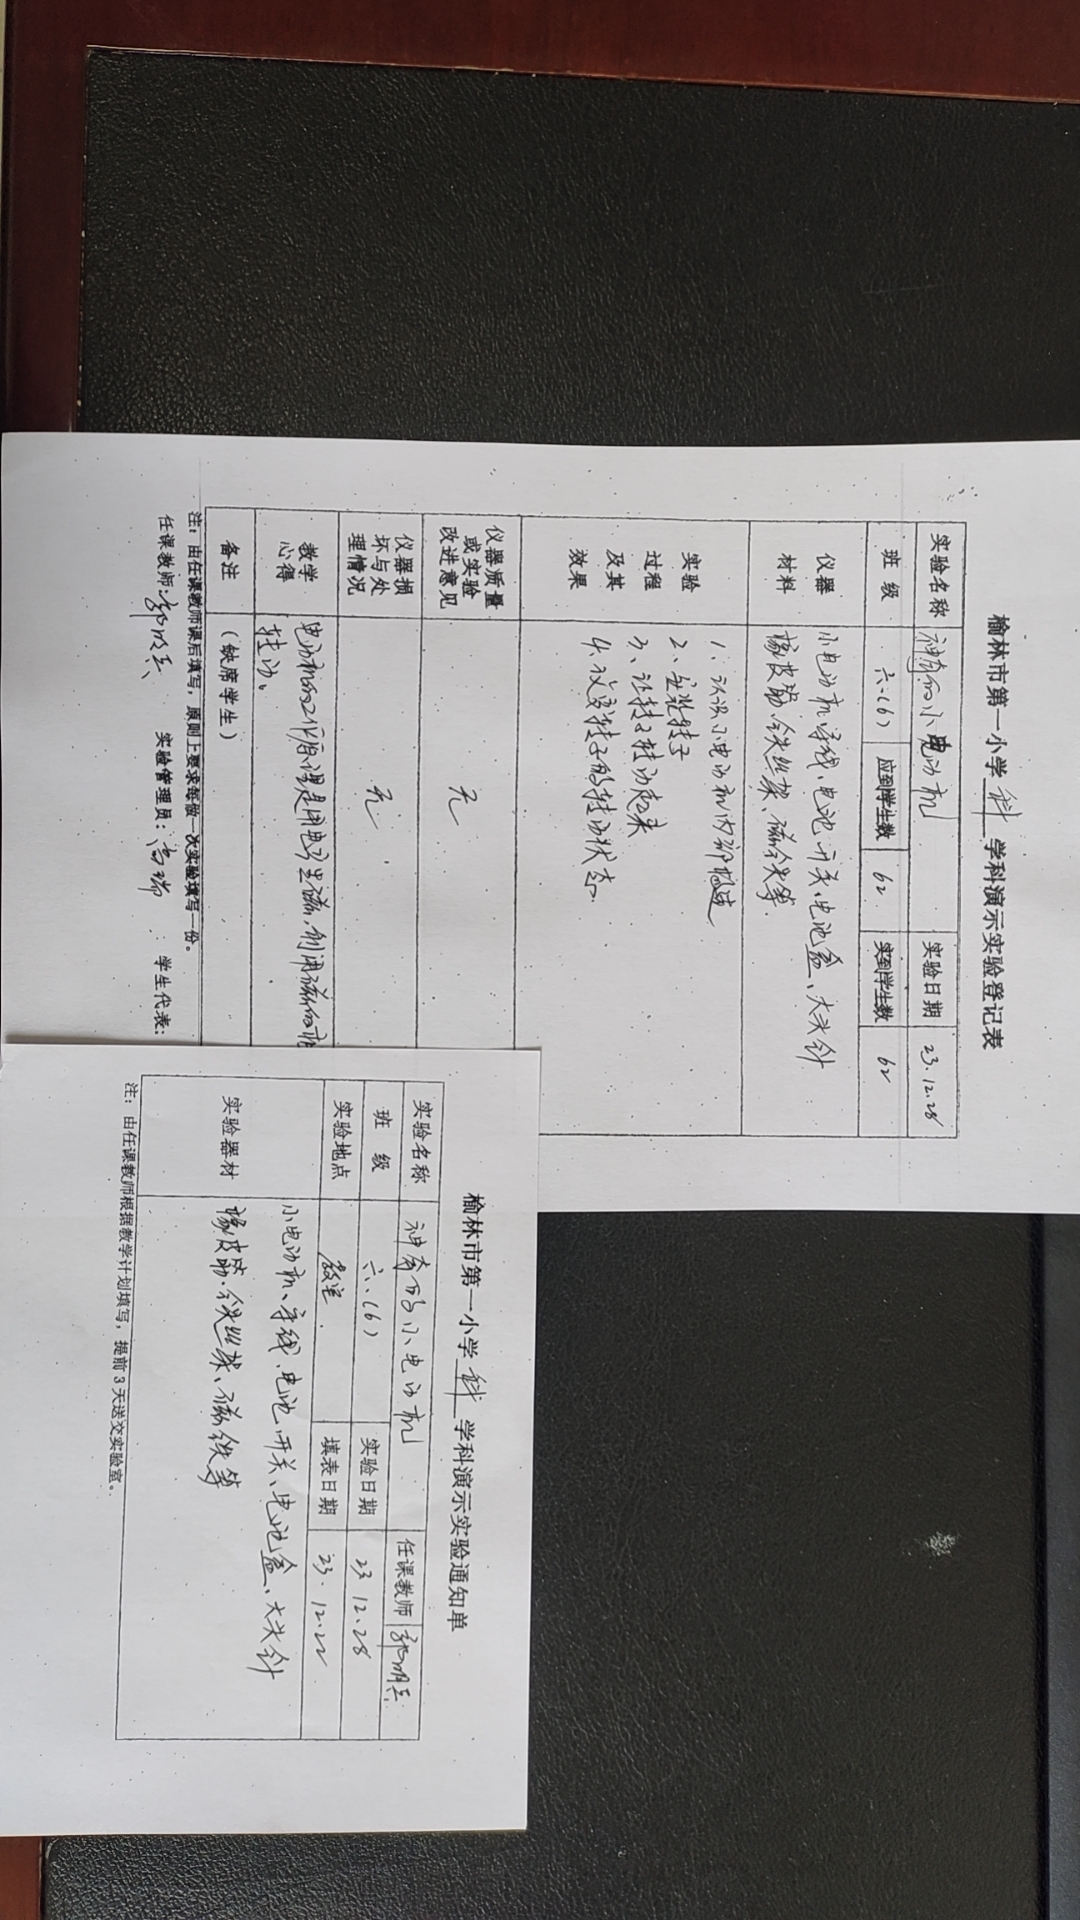 榆林市第一小学 科 学科演示实验登记表
实验名称 神奇的小电动机 实验日期 23.12.28
班 级 六.(6) 应到学生数 62 实到学生数 62
仪器 材料 小电动机、导线、电池、开关、电池盒、大头针
橡皮筋、铁丝架、磁铁等.
实验 过程 及其 效果 1、认识小电动机内部构造
2、安装转子
3、让转子转动起来
4、改变转子的转动状态
仪器质量 或实验 改进意见 无
仪器损 坏与处 理情况 无
教学 心得 电动机的工作原理是用电产生磁,利用磁的
转动。
备注 (缺席学生)
注：由任课教师课后填写，原则上要求每做一次实验填写一份。
任课教师: 实验管理员: 高瑞 学生代表:
榆林市第一小学 科 学科演示实验通知单
实验名称 神奇的小电动机 任课教师
班 级 六.(6) 实验日期 23 12.28
实验地点 教室. 填表日期 23.12.22
实验器材 小电动机、导线、电池、开关、电池盒、大头针
橡皮筋、铁丝架、磁铁等
注：由任课教师根据教学计划填写，提前3天送交实验室。